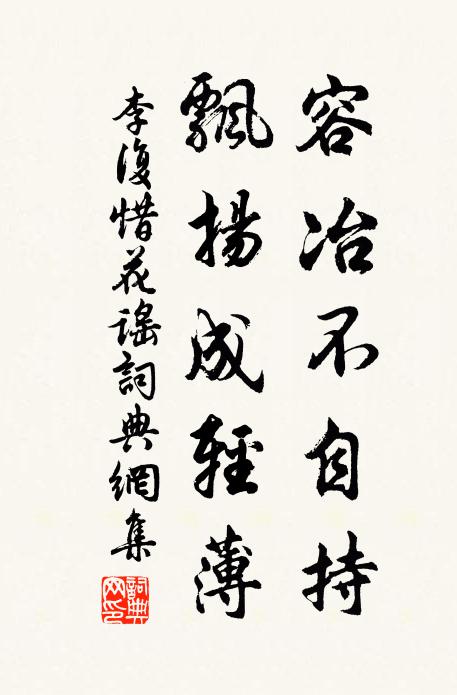 容冶不自持
飄揚成輕薄
李復惜花謠詞典網集
詞典網印